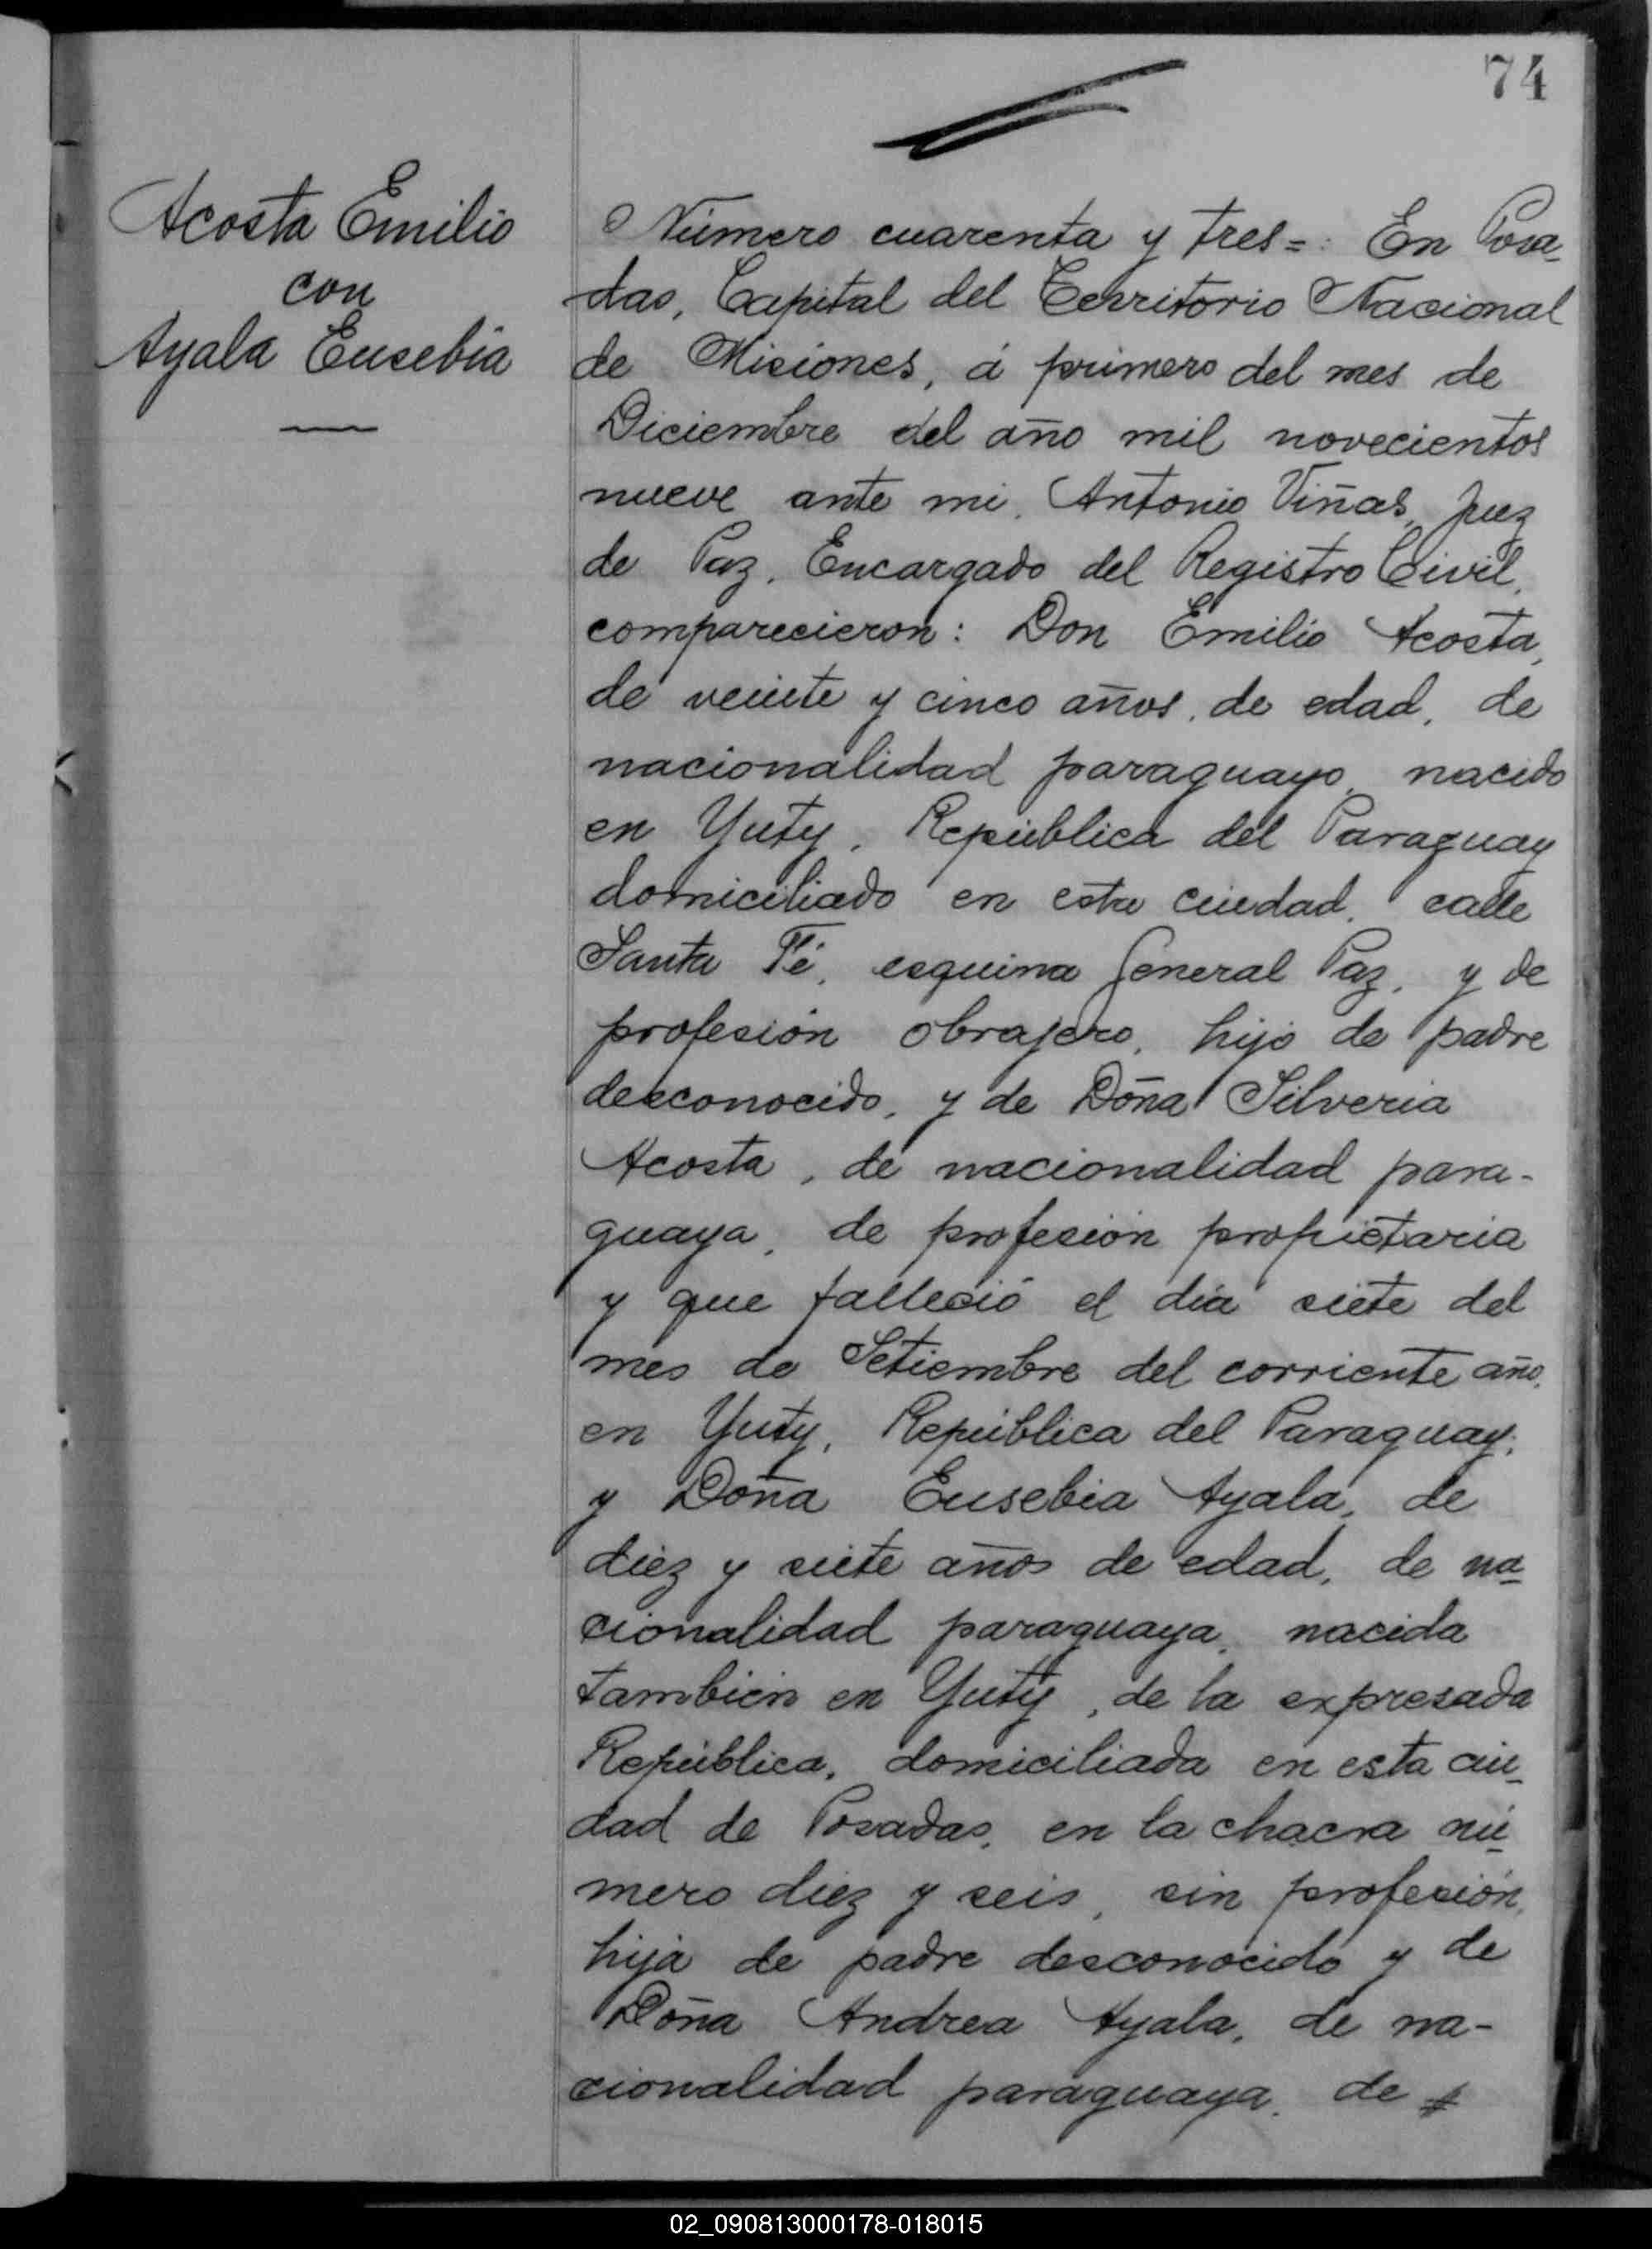 74
Acosta Emilio
con
Ayala Eusebia
Número cuarenta y tres=: En Posa-
das, Capital del Territorio Nacional
de Misiones, á primero del mes de
Diciembre del año mil novecientos
nueve ante mi, Antonio Viñas, Juez
de Paz, Encargado del Registro Civil,
comparecieron: Don Emilio Acosta,
de veinte y cinco años, de edad, de
nacionalidad paraguayo, nacido
en Yuty, República del Paraguay
domiciliado en esta ciudad, calle
Santa Fé, esquina General Paz, y de
profesión obrajero, hijo de padre
desconocido, y de Doña Silveria
Acosta, de nacionalidad para-
guaya, de profesión propietaria
y que falleció el día siete del
mes de Setiembre del corriente año,
en Yuty, República del Paraguay;
y Doña Eusebia Ayala, de
diez y siete años de edad, de na-
cionalidad paraguaya, nacida
también en Yuty, de la expresada
República, domiciliada en esta ciu-
dad de Posadas, en la chacra nú-
mero diez y seis, sin profesión,
hija de padre desconocido y de
Doña Andrea Ayala, de na-
cionalidad paraguaya, de
02_090813000178-018015